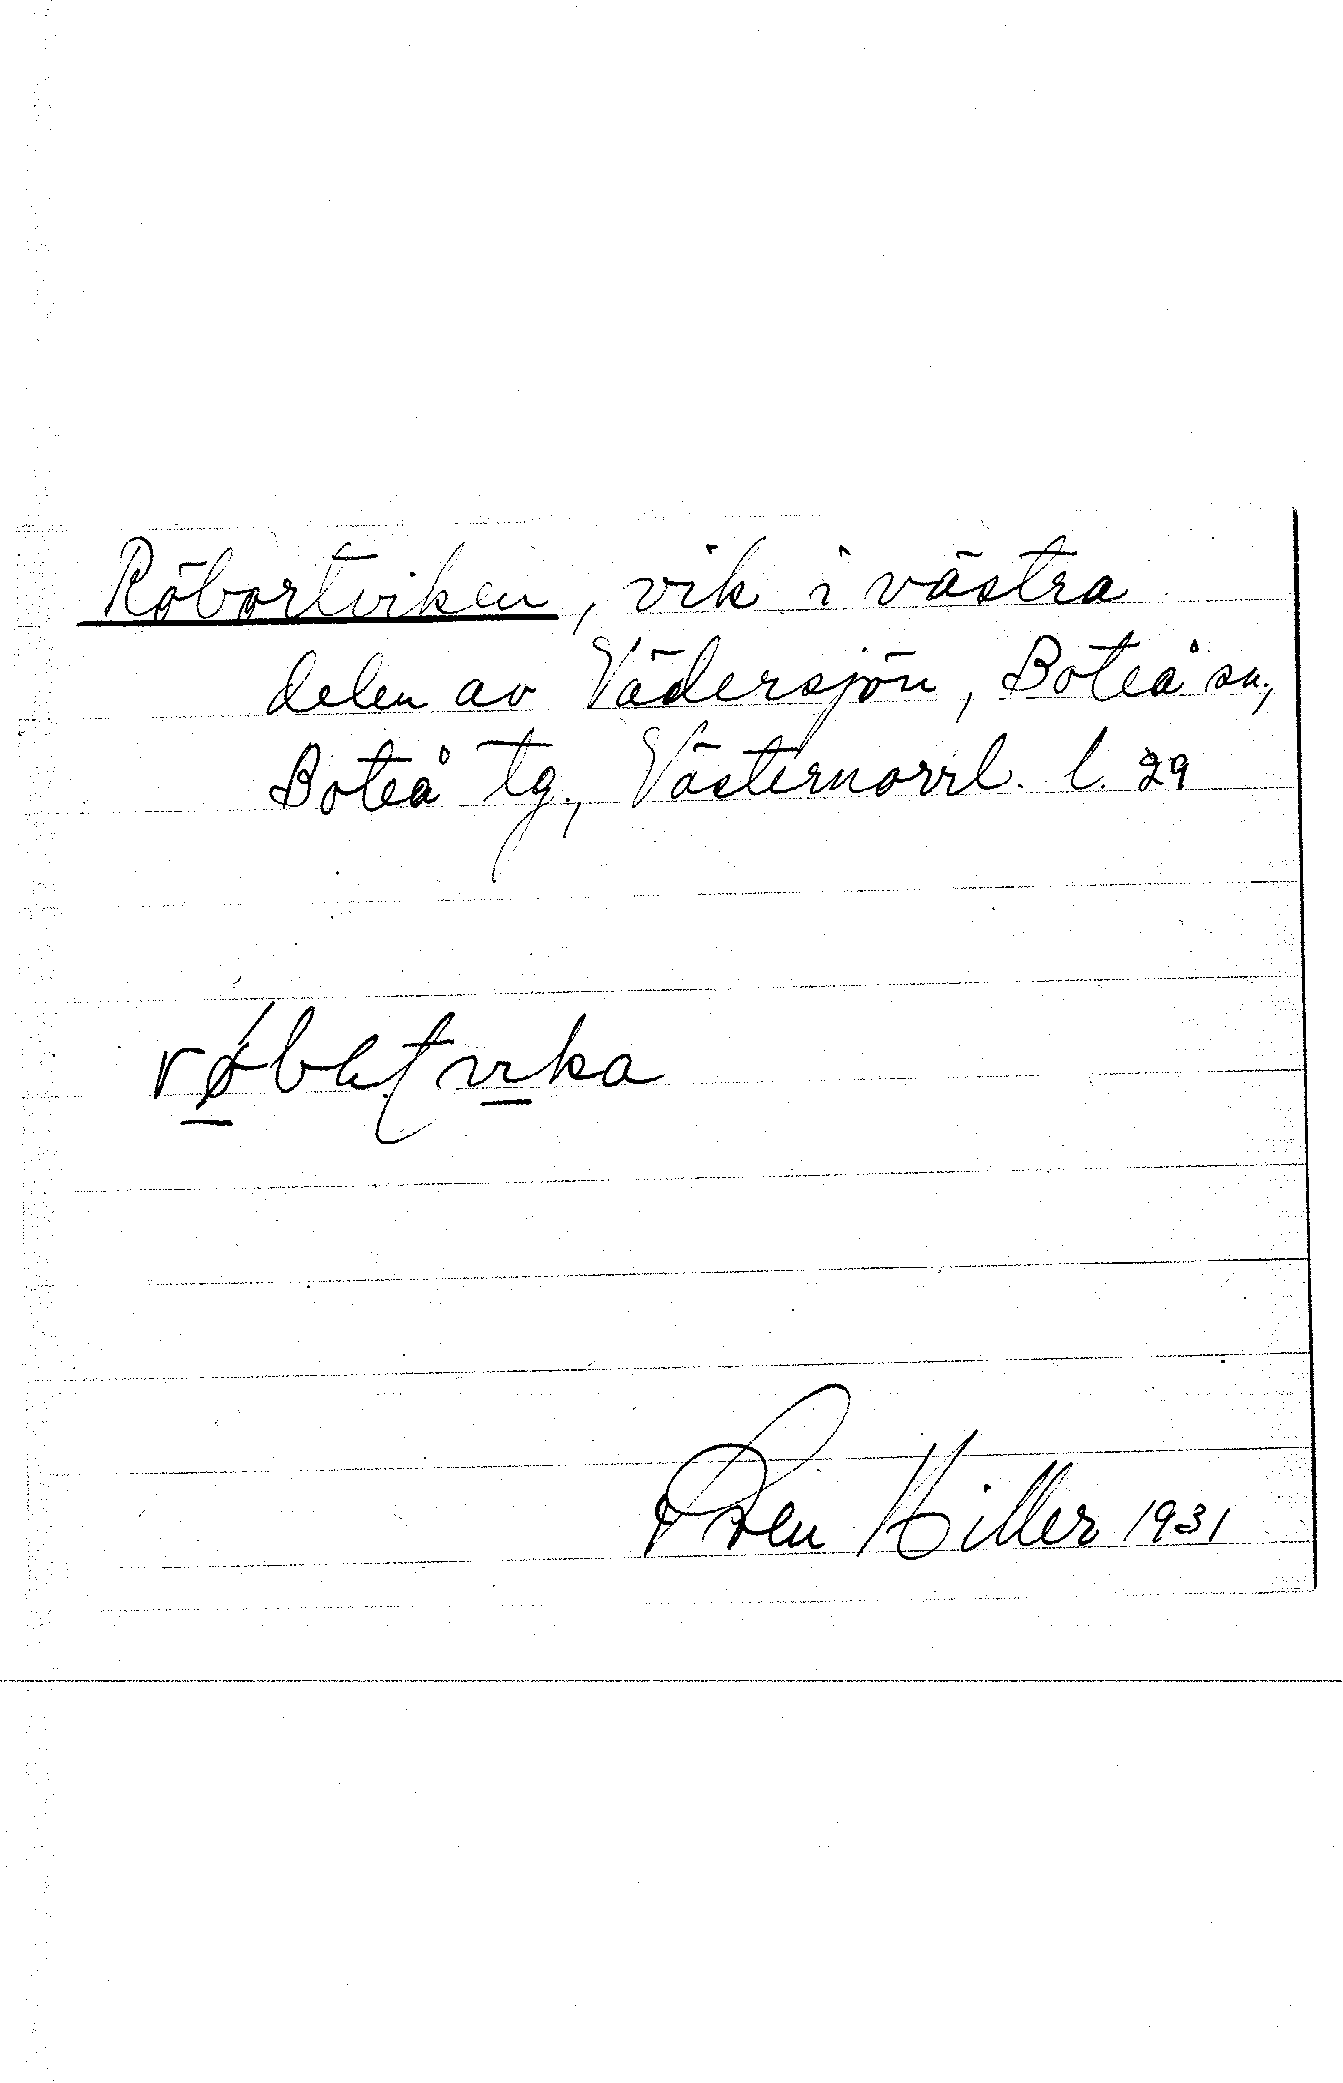 Röbortviken, vik i västra
delen av Vädersjön, Boteå sn.,
Boteå tg., Västernorrl. l. 29
Hiller 1931